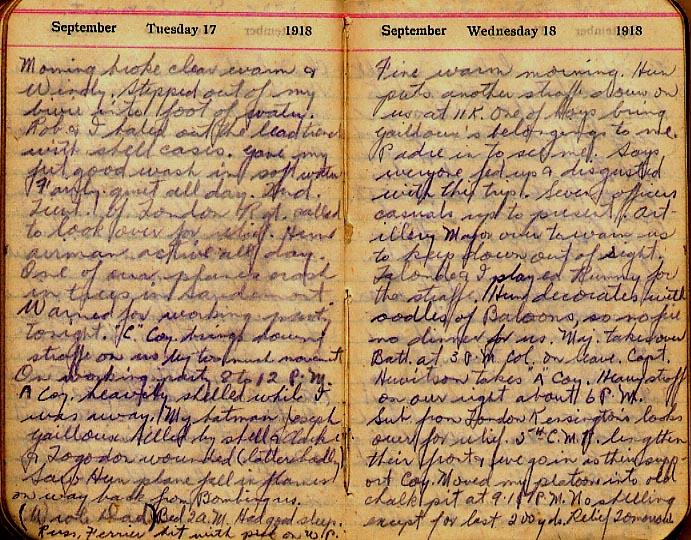 September Tuesday 17 1918
Morning broke clear warm &
Windy. Stepped out of my
bivie into 1 foot of water.
Rob & I baled out the lead trench
with shell cases. Gave my
feet good wash in soft water
Fairly quiet all day. 2nd.
Lieut. of London Rgt. called
to look over for relief. Hun
airman active all day.
One of our planes crash
in trees in
Warned for working party
tonight. "C" Coy. brings down
straffe on us by too much movement
On working party 8 to 12 P.M.
A Coy. heavily shelled while I
was away. My batman Joseph
Gaillous killed by shell &
& Logodon wounded (latter badly)
Saw Hun plane fall in flames
on way back from Bombing us.
(Wrote Dad) Bed 2 A.M. Had good sleep.
Russ, Ferrier hit with pick on W.P.
September Wednesday 18 1918
Fine warm morning. Hun
puts another straff down on
us at 11 K. One of boys bring
Gaillous's belongings to me.
Padre in to see me. Says
everyone fed up & disgusted
with this trip. Seven officer
casuals up to present. Art-
illery Major over to warn us
to keep down out of sight.
& I played Rummy for
the straffe. Hun decorates with
oodles of Baloons, so no fire
no dinner for us. Maj. takes over
Batt. at 3 P.M. Col. on leave. Capt.
takes "A" Coy. Heavy straff
on our right about 6 P.M.
Sub from London Kensingtons looks
over for relief. 5th C.M.R. lengthen
their front & we go in as their supp-
ort Coy. Moved my platoon into old
chalk pit at 9.15 P.M. No shelling
except for last 200 yds. Relief tomorrow